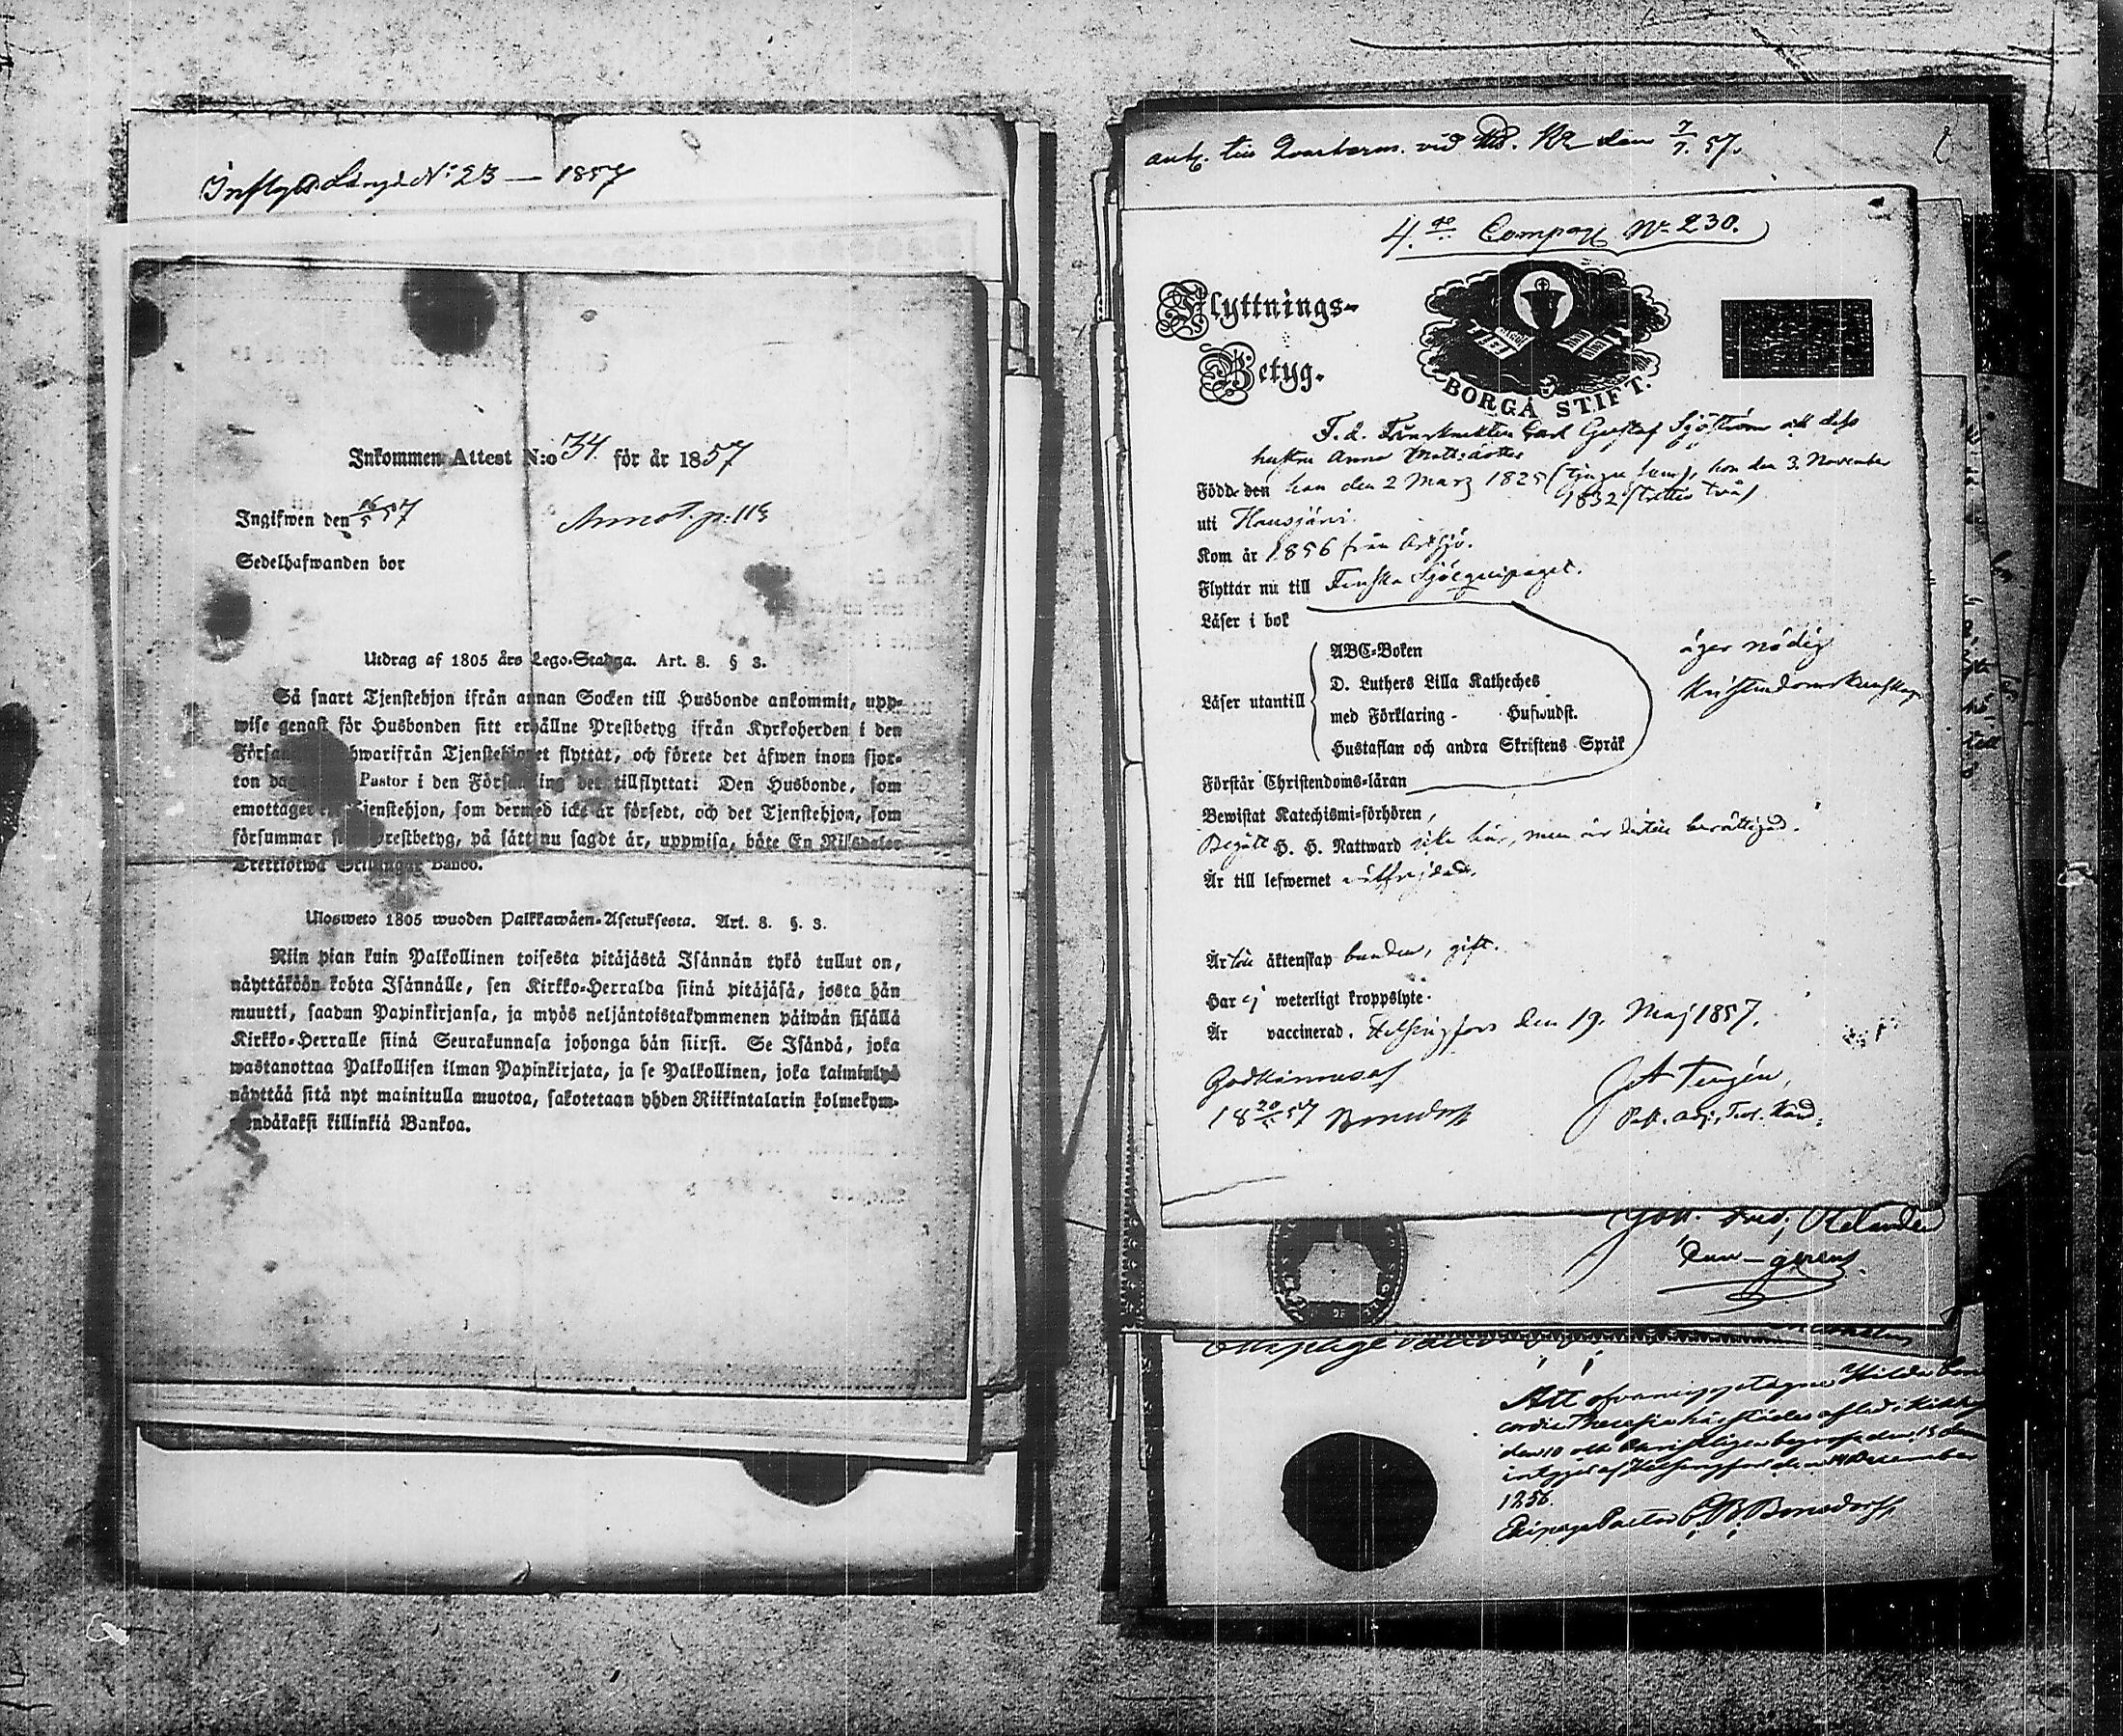 Inflyttn. Längd N:o 23 — 1857
Inkommen Attest N:o 34 för år 1857
Ingifwen den 26/5 57 Annot. p. 113
Sedelhafwanden bor
Utdrag af 1805 års Lego-Stadga. Art. 8. § 3.
Så snart Tjenstehjon ifrån annan Socken till Husbonde ankommit, upp-
wise genast för Husbonden sitt erhållne Prestbetyg ifrån Kyrkoherden i den
hwarifrån Tjenstehjonet flyttat, och förete det äfwen inom fjor-
ton Pastor i den Församling det tillflyttat: Den Husbonde, som
emottager Tjenstehjon, som dermed icke är försedt, och det Tjenstehjon, som
försummar Prestbetyg, på sätt nu sagdt är, uppwisa, böte En Riksdaler
Trettiotwå Skillingar Banco.
Ulosweto 1805 wuoden Palkkawäen-Asetuksesta. Art. 8. §. 3.
Niin pian kuin Palkollinen toisesta pitäjästä Isännän tykö tullut on,
näyttäköön kohta Isännälle, sen Kirkko-Herralda siinä pitäjäsä, josta hän
muutti, saadun Papinkirjansa, ja myös neljäntoistakymmenen päiwän sisällä
Kirkko-Herralle siinä Seurakunnasa johonga hän siirsi. Se Isändä, joka
wastanottaa Palkollisen ilman Papinkirjata, ja se Palkollinen, joka laiminlyö
näyttää sitä nyt mainitulla muotoa, sakotetaan yhden Riikintalarin kolmekym-
mendäkaksi killinkiä Bankoa.
vid den 7/7. 57.
4.de Compagn N:o 230.
Flyttnings-
Betyg.
BORGÅ STIFT.
F. d. Carl Gustaf Sjöström och dess
hustru Anna Matts:dotter
Född den han den 2 Mars 1825 (tjugu fem), hon den 3. November
1832 (trettio två)
uti Hausjärvi.
Kom år 1856 från Artsjö.
Flyttar nu till Finska Sjöequipaget.
Läser i bok
Läser utantill
ABC-Boken
D. Luthers Lilla Katheches
med Förklaring - Hufwudst.
Hustaflan och andra Skriftens Språk
äger nödig
Kristendomskunskap
Förstår Christendoms-läran
Bewistat Katechismi-förhören,
Begått H. H. Nattward icke här, men är dertill berättigad.
Är till lefwernet wälfrejdad.
Är till äktenskap bunden, gift.
Har ej weterligt kroppslyte.
Är vaccinerad. Helsingfors den 19. Maj 1857.
Godkännes af
18 20/5 57 Bonsdorff
Tengén,
Past. Adj.
Joh. Fred. Relander
Att
den 10 och Christligen begrafven den 15
intygar af Helsingfors den December
1856.
Equipage Pastor C. B. Bonsdorff